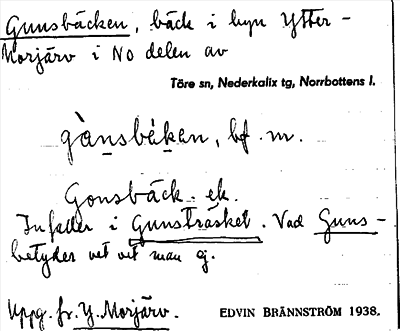 Gunsbäcken, bäck i byn Ytter-
Morjärv i NO delen av
Töre sn, Nederkalix tg, Norrbottens l.
gànsbä́ken, bf. m.
Gonsbäck. ek.
Infaller i Gunsträsket. Vad Guns-
betyder vet vet man ej.
Uppg. fr. Y. Morjärv.
EDVIN BRÄNNSTRÖM 1938.